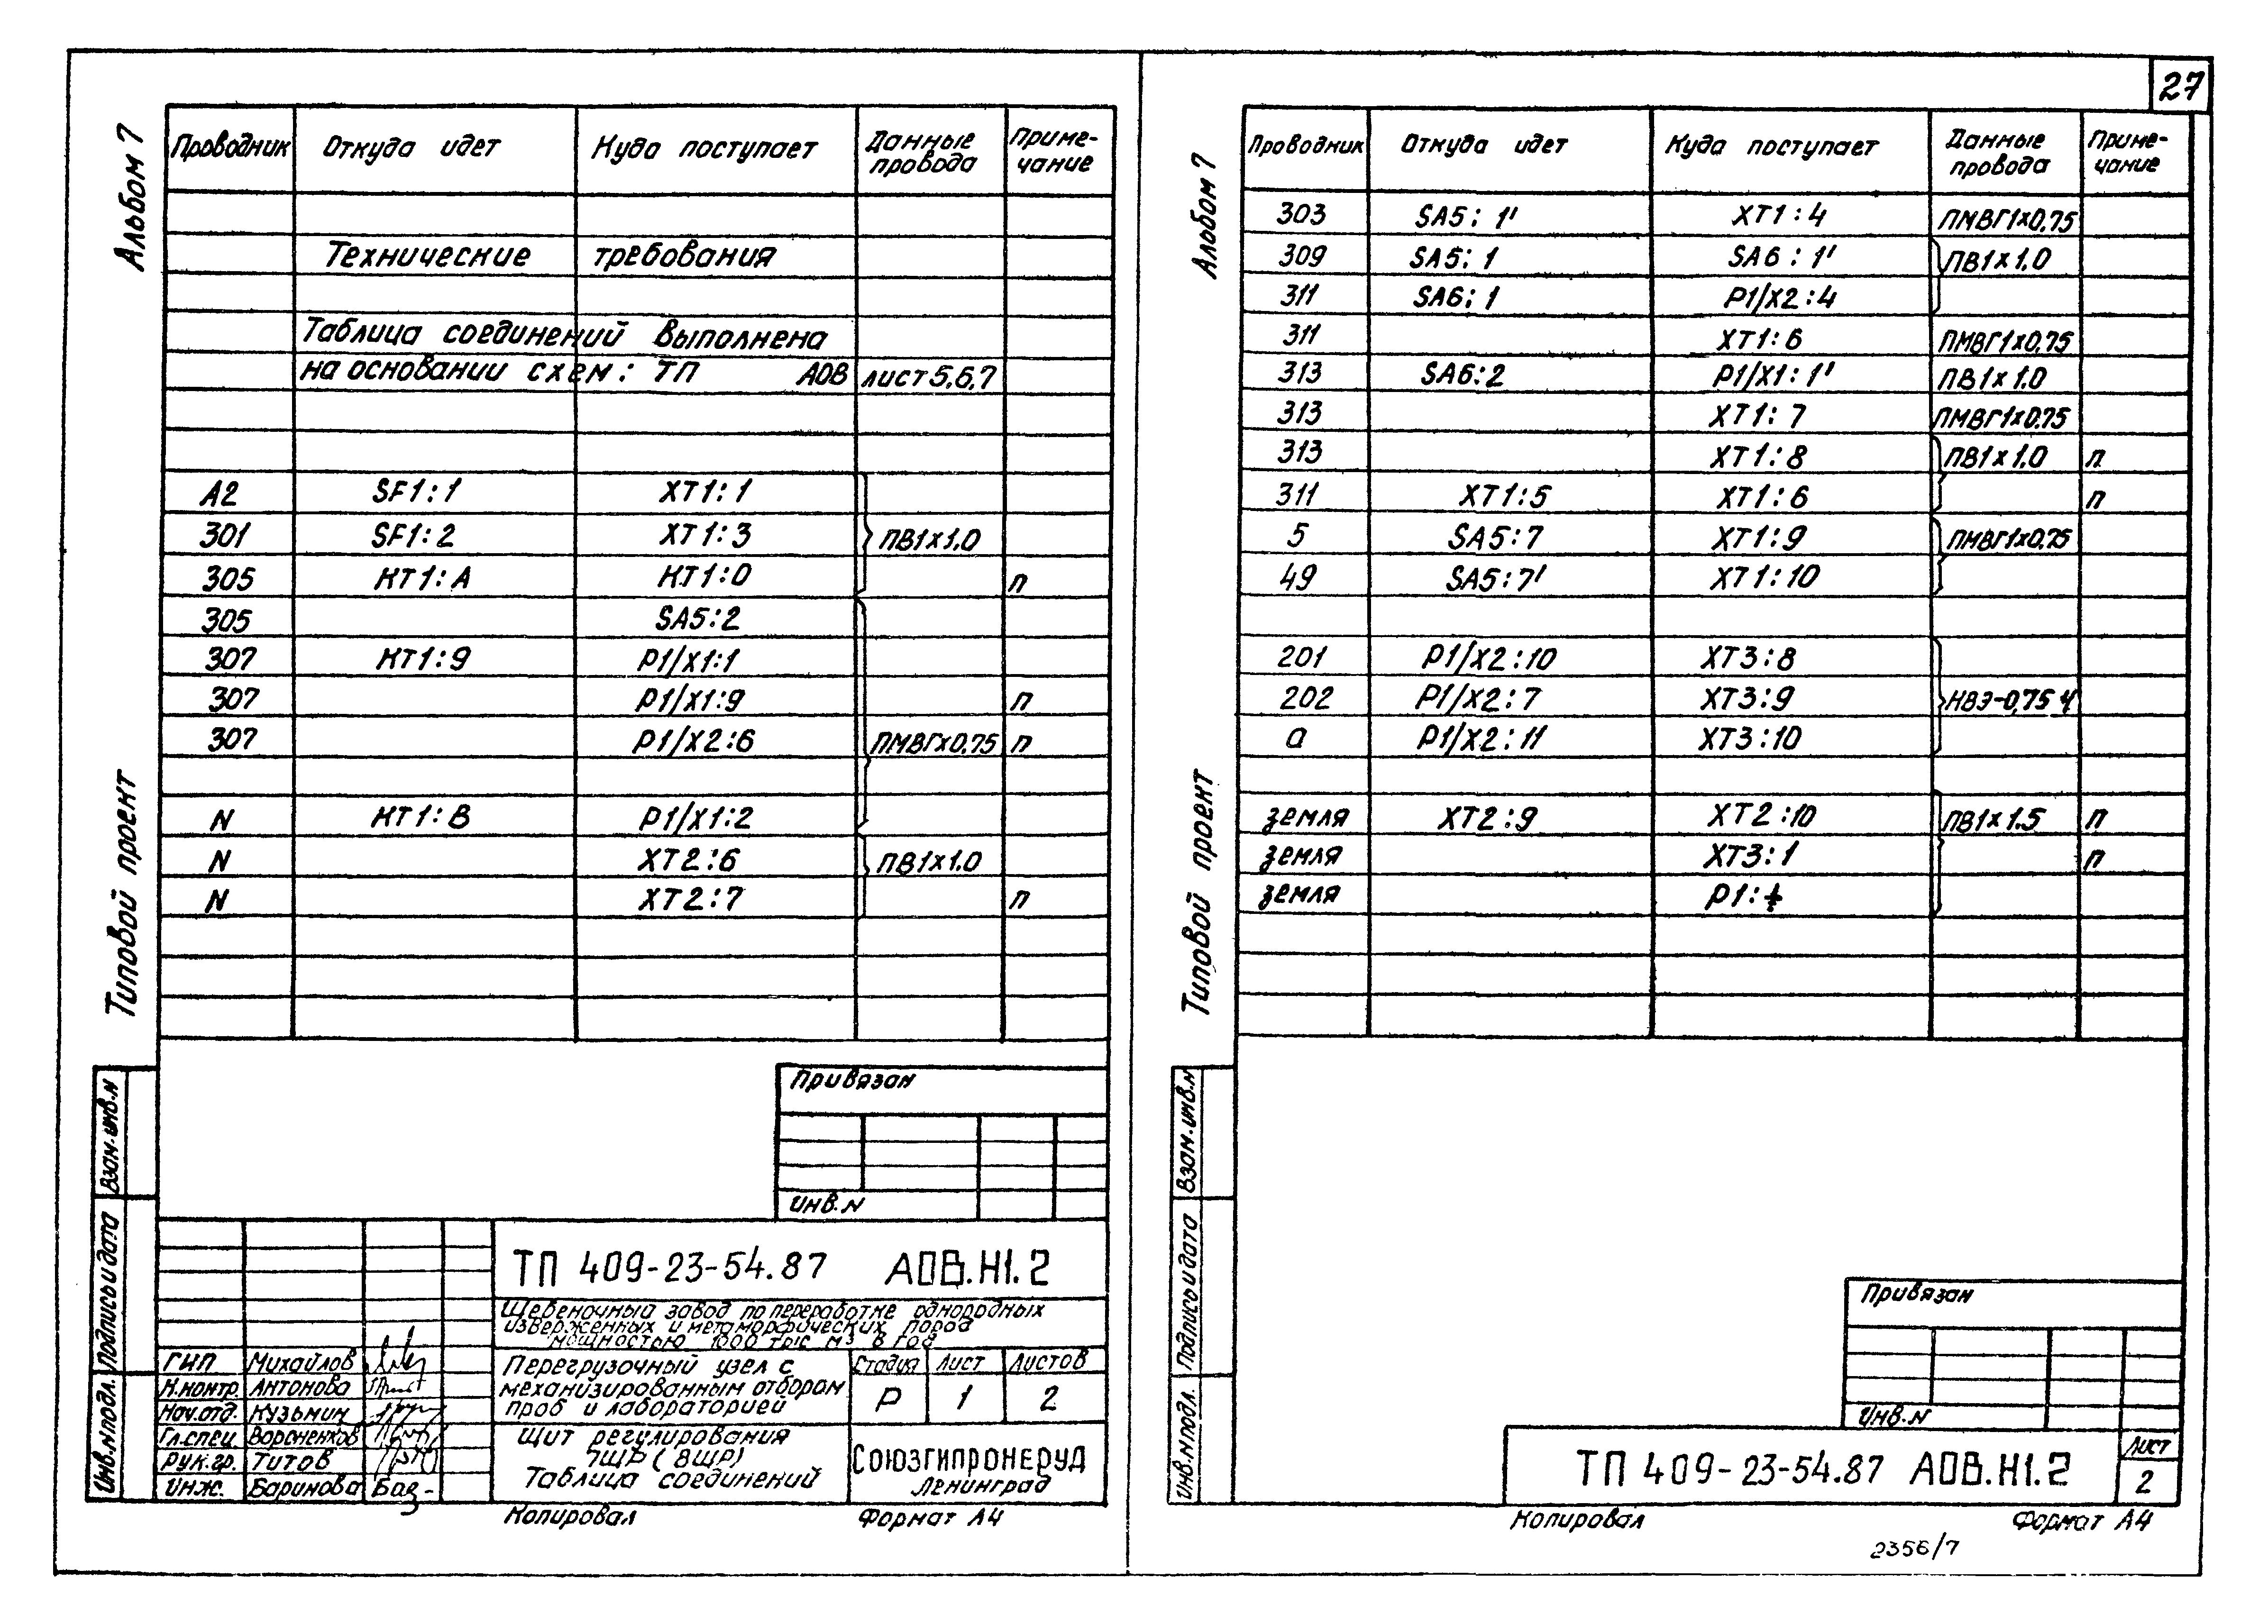 27
Альбом 7
Типовой проект
Проводник Откуда идет Куда поступает Данные провода Примечание
Технические требования
Таблица соединений выполнена
на основании схем: ТП АОВ лист 5,6,7
А2 SF1:1 XT1:1
301 SF1:2 XT1:3 ПВ1х1.0
305 КТ1:А КТ1:0 п
305 SA5:2
307 КТ1:9 Р1/Х1:1
307 Р1/Х1:9 п
307 Р1/Х2:6 ПМВГх0.75 п
N КТ1:В Р1/Х1:2
N ХТ2:6 ПВ1х1.0
N ХТ2:7 п
Привязан
Инв.N
Взам.инв.N
Подпись и дата
Инв.N подл.
ТП 409-23-54.87 АОВ.Н1.2
Щебеночный завод по переработке однородных
изверженных и метаморфических пород
мощностью 1000 тыс м³ в год
ГИП Михайлов
Н.контр. Антонова
Нач.отд. Кузьмин
Гл.спец. Вороненков
Рук.гр. Титов
Инж. Баринова
Перегрузочный узел с
механизированным отбором
проб и лабораторией
Стадия Лист Листов
Р 1 2
Щит регулирования
7ЩР (8ЩР)
Таблица соединений
Союзгипронеруд
Ленинград
Копировал Формат А4
Альбом 7
Типовой проект
Проводник Откуда идет Куда поступает Данные провода Примечание
303 SA5:1' XT1:4 ПМВГ1х0,75
309 SA5:1 SA6:1' ПВ1х1.0
311 SA6:1 Р1/Х2:4
311 XT1:6 ПМВГ1х0,75
313 SA6:2 Р1/Х1:1' ПВ1х1.0
313 XT1:7 ПМВГ1х0.75
313 XT1:8 ПВ1х1.0 п
311 XT1:5 XT1:6 п
5 SA5:7 XT1:9 ПМВГ1х0,75
49 SA5:7' XT1:10
201 Р1/Х2:10 ХТ3:8
202 Р1/Х2:7 ХТ3:9 НВЭ-0,75 4
а Р1/Х2:11 ХТ3:10
земля ХТ2:9 ХТ2:10 ПВ1х1.5 п
земля ХТ3:1 п
земля Р1:⏚
Взам.инв.N
Подпись и дата
Инв.N подл.
Привязан
Инв.N
ТП 409-23-54.87 АОВ.Н1.2
Лист
2
Копировал Формат А4
2356/7